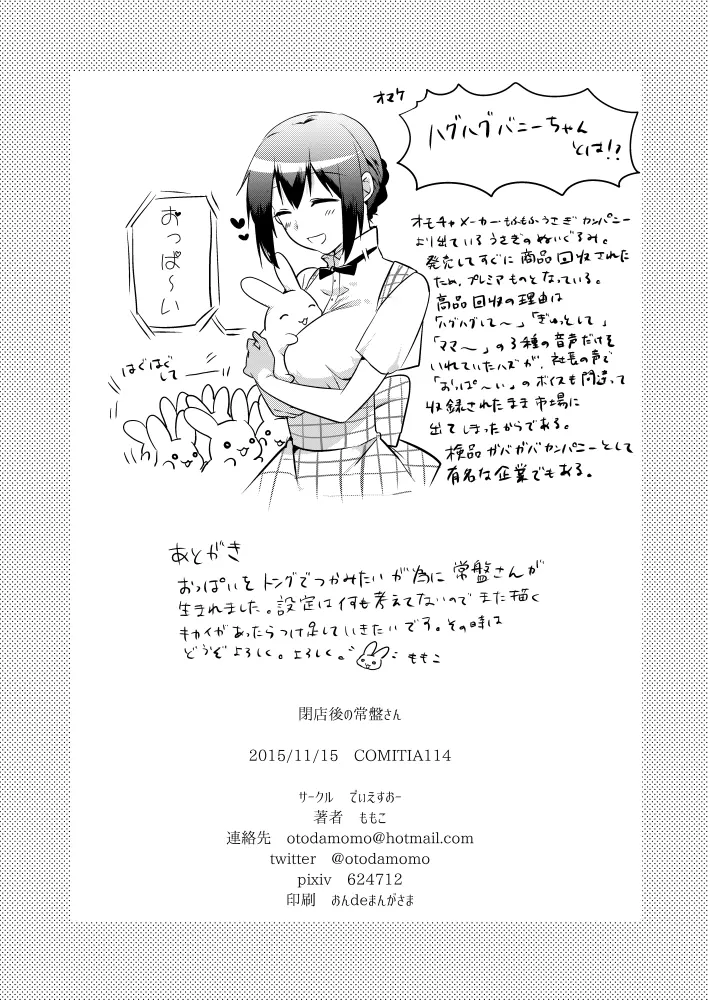 オマケ
ハグハグバニーちゃん
とは!?
オモチャメーカー・もふもふうさぎカンパニー
より出ているうさぎのぬいぐるみ。
発売してすぐに商品回収された
ため、プレミアものとなっている。
商品回収の理由は
「ハグハグして～」「ぎゅっとして」
「ママ～」の3種の音声だけを
いれていたハズが、社長の声で
「おっぱ～い」のボイスも間違って
収録されたまま市場に
出てしまったからである。
検品ガバガバカンパニーとして
有名な企業でもある。
おっぱ～い
はぐはぐ
して――
あとがき
おっぱいをトングでつかみたいが為に常盤さんが
生まれました。設定は何も考えてないのでまた描く
キカイがあったらつけ足していきたいです。その時は
どうぞよろしく。よろしく。
ももこ
閉店後の常盤さん
2015/11/15 COMITIA114
サークル でぃえすおー
著者 ももこ
連絡先 otodamomo@hotmail.com
twitter @otodamomo
pixiv 624712
印刷 おんdeまんがさま